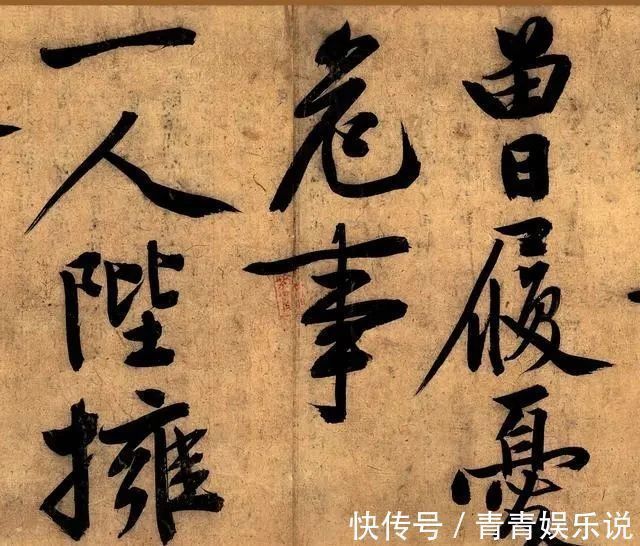 曾履憂
危事
一人陛擁
快传号 / 青青娱乐说